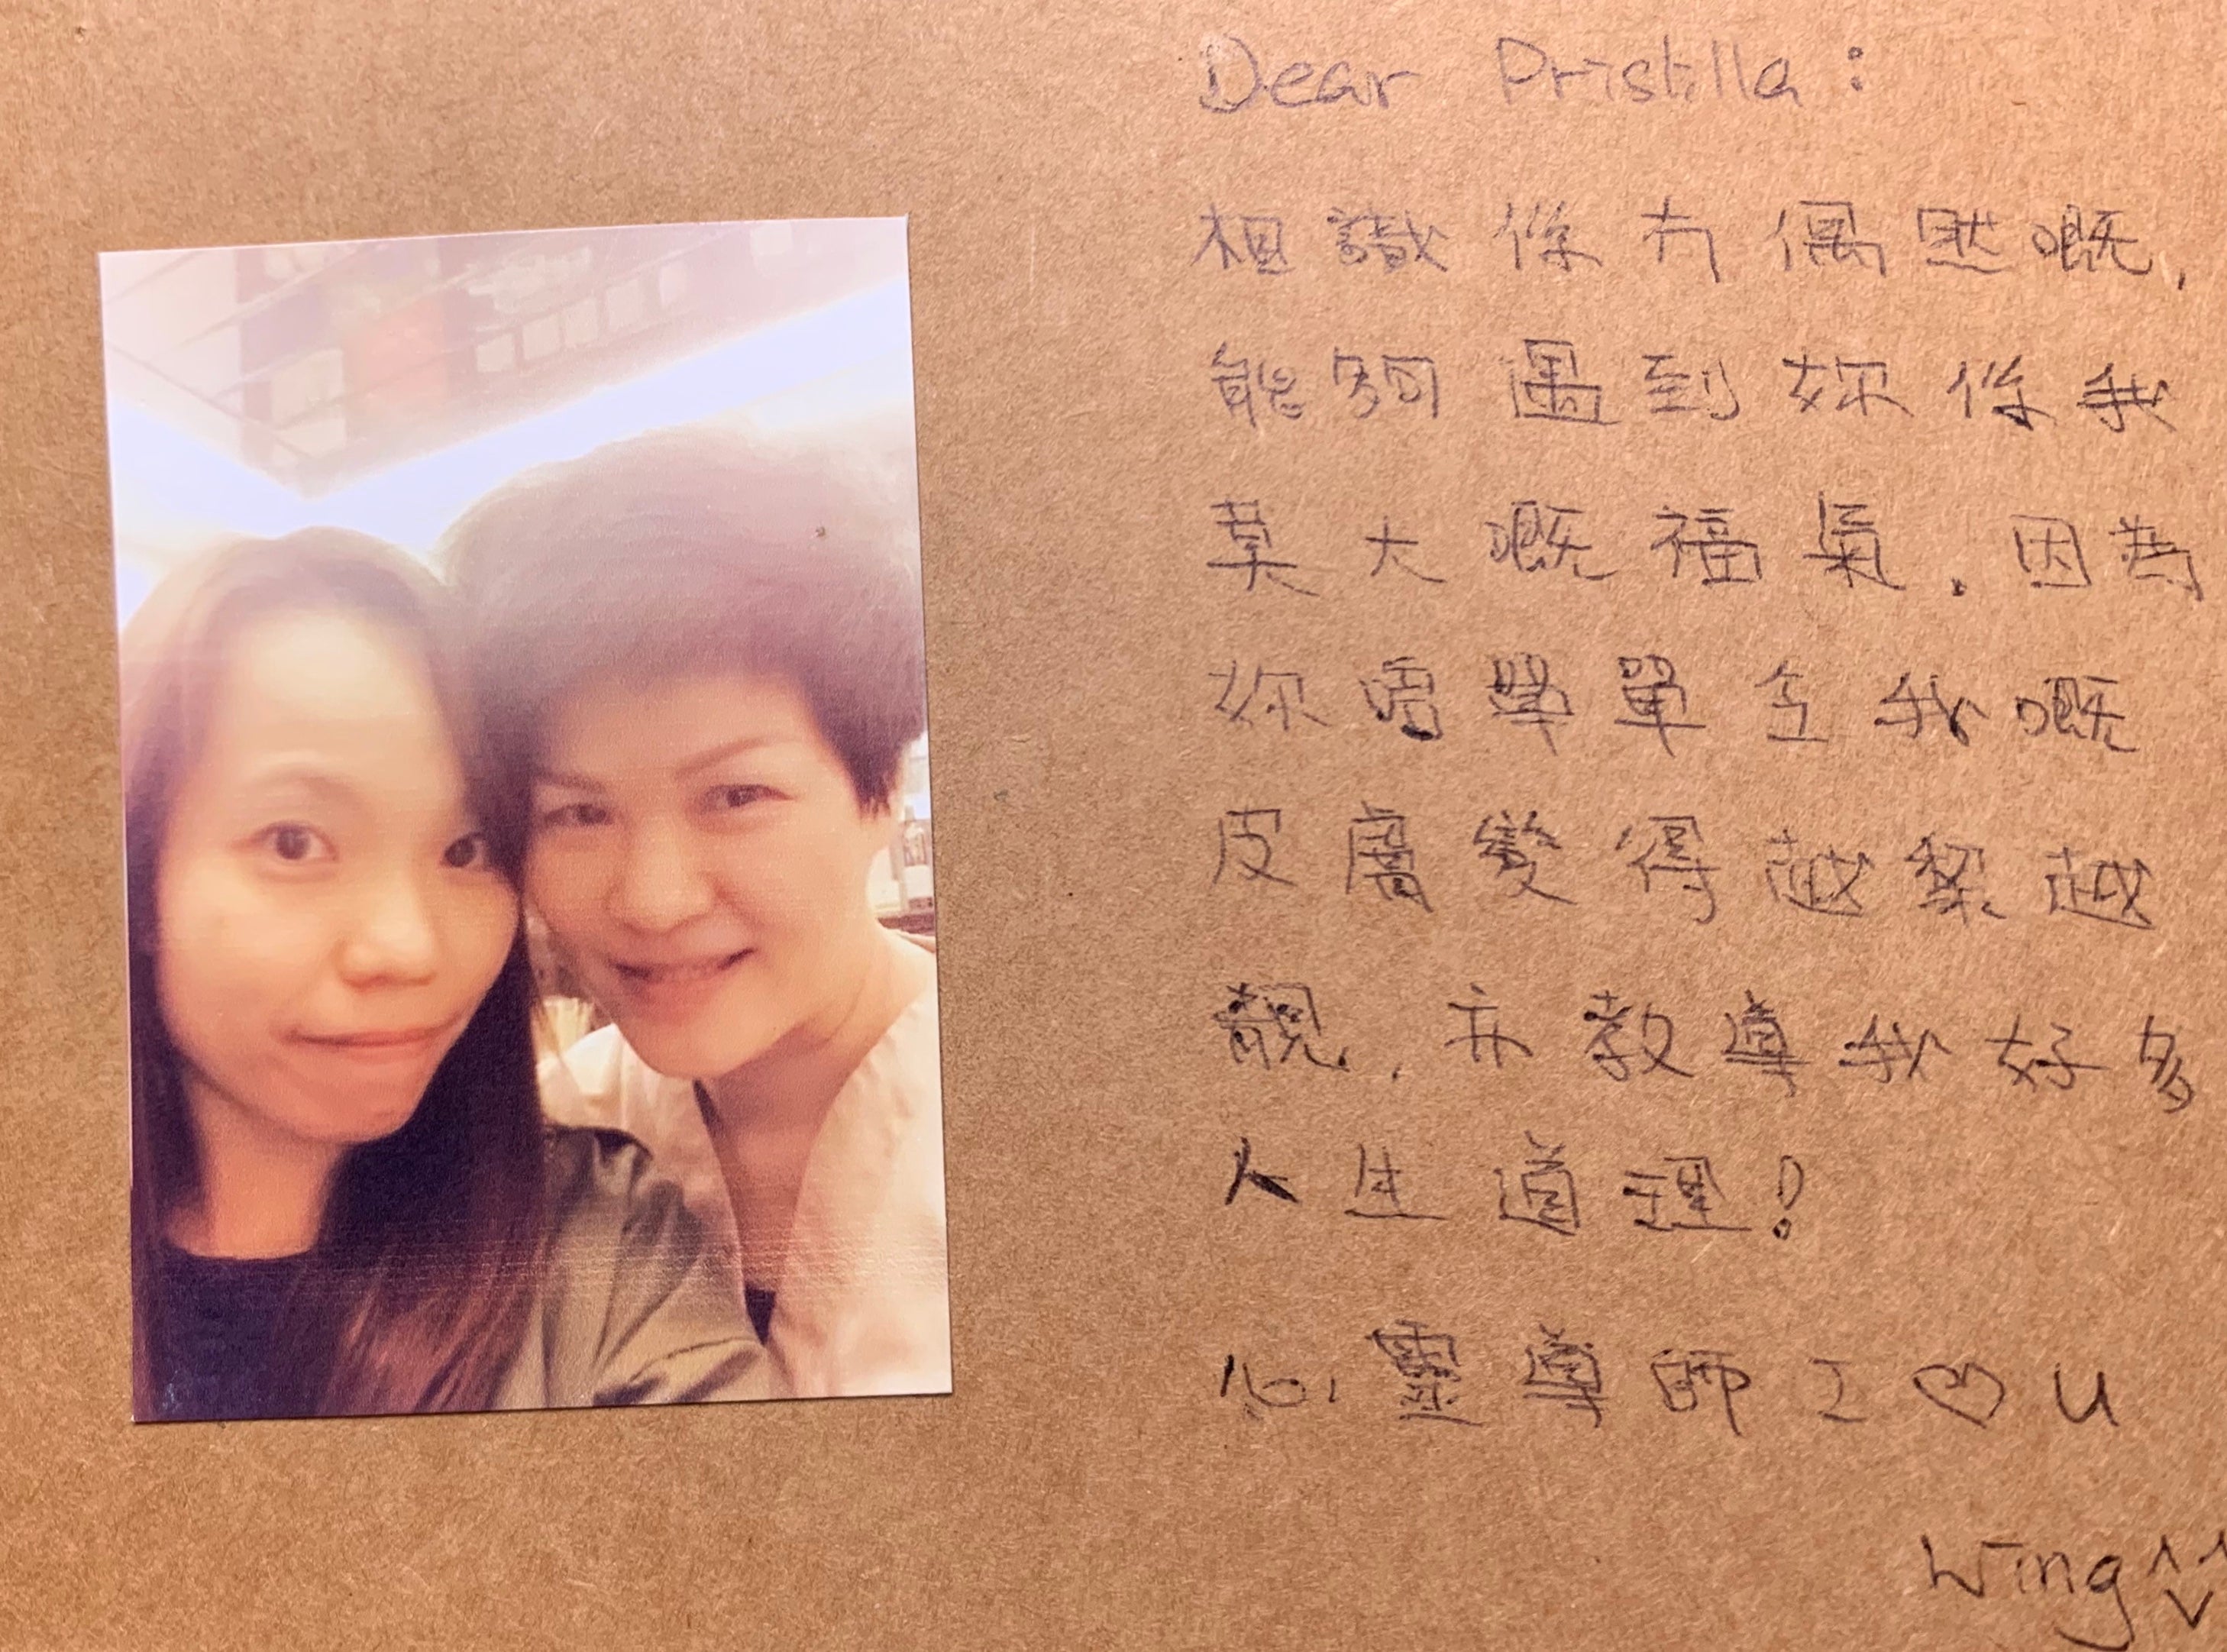 Dear Pristilla :
相識係冇偶然嘅,
能夠遇到妳係我
莫大嘅福氣.因為
妳唔單單令我嘅
皮膚變得越嚟越
靚,亦教導我好多
人生道理!
心靈導師 I ♡ U
Wing